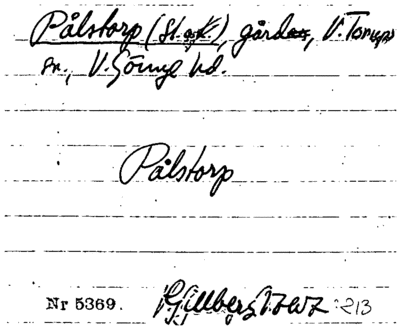 Pålstorp (St. o. k.), gård, V. Torups
sn., V. Göinge hd.
Pålstorp
Nr 5369. Gillberg 213